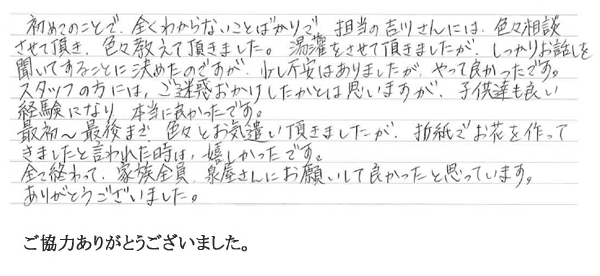 初めてのことで、全くわからないことばかりで、担当の吉川さんには、色々相談
させて頂き、色々教えて頂きました。湯灌をさせて頂きましたが、しっかりお話しを
聞いてすることに決めたのですが、少し不安はありましたが、やって良かったです。
スタッフの方には、ご迷惑おかけしたかとは思いますが、子供達も良い
経験になり、本当に良かったです。
最初〜最後まで、色々とお気遣い頂きましたが、折紙でお花を作って
きましたと言われた時は、嬉しかったです。
全て終わって、家族全員、泉屋さんにお願いして良かったと思っています。
ありがとうございました。
ご協力ありがとうございました。